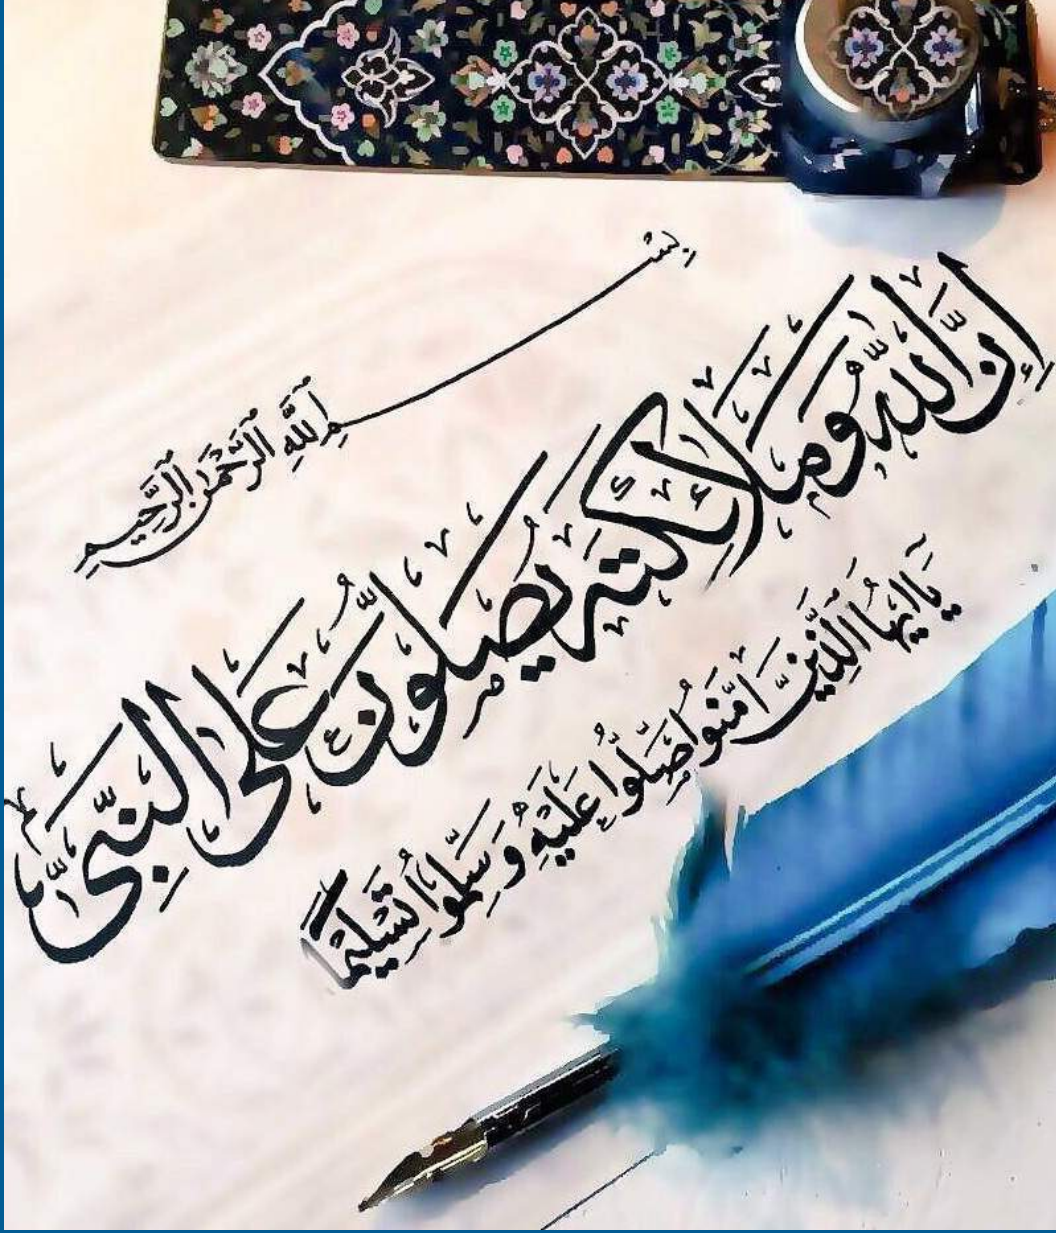 بِسْمِ ٱللَّهِ ٱلرَّحْمَٰنِ ٱلرَّحِيمِ
إِنَّ ٱللَّهَ وَمَلَائِكَتَهُ يُصَلُّونَ عَلَى ٱلنَّبِيِّ
يَا أَيُّهَا ٱلَّذِينَ آمَنُوا صَلُّوا عَلَيْهِ وَسَلِّمُوا تَسْلِيمًا